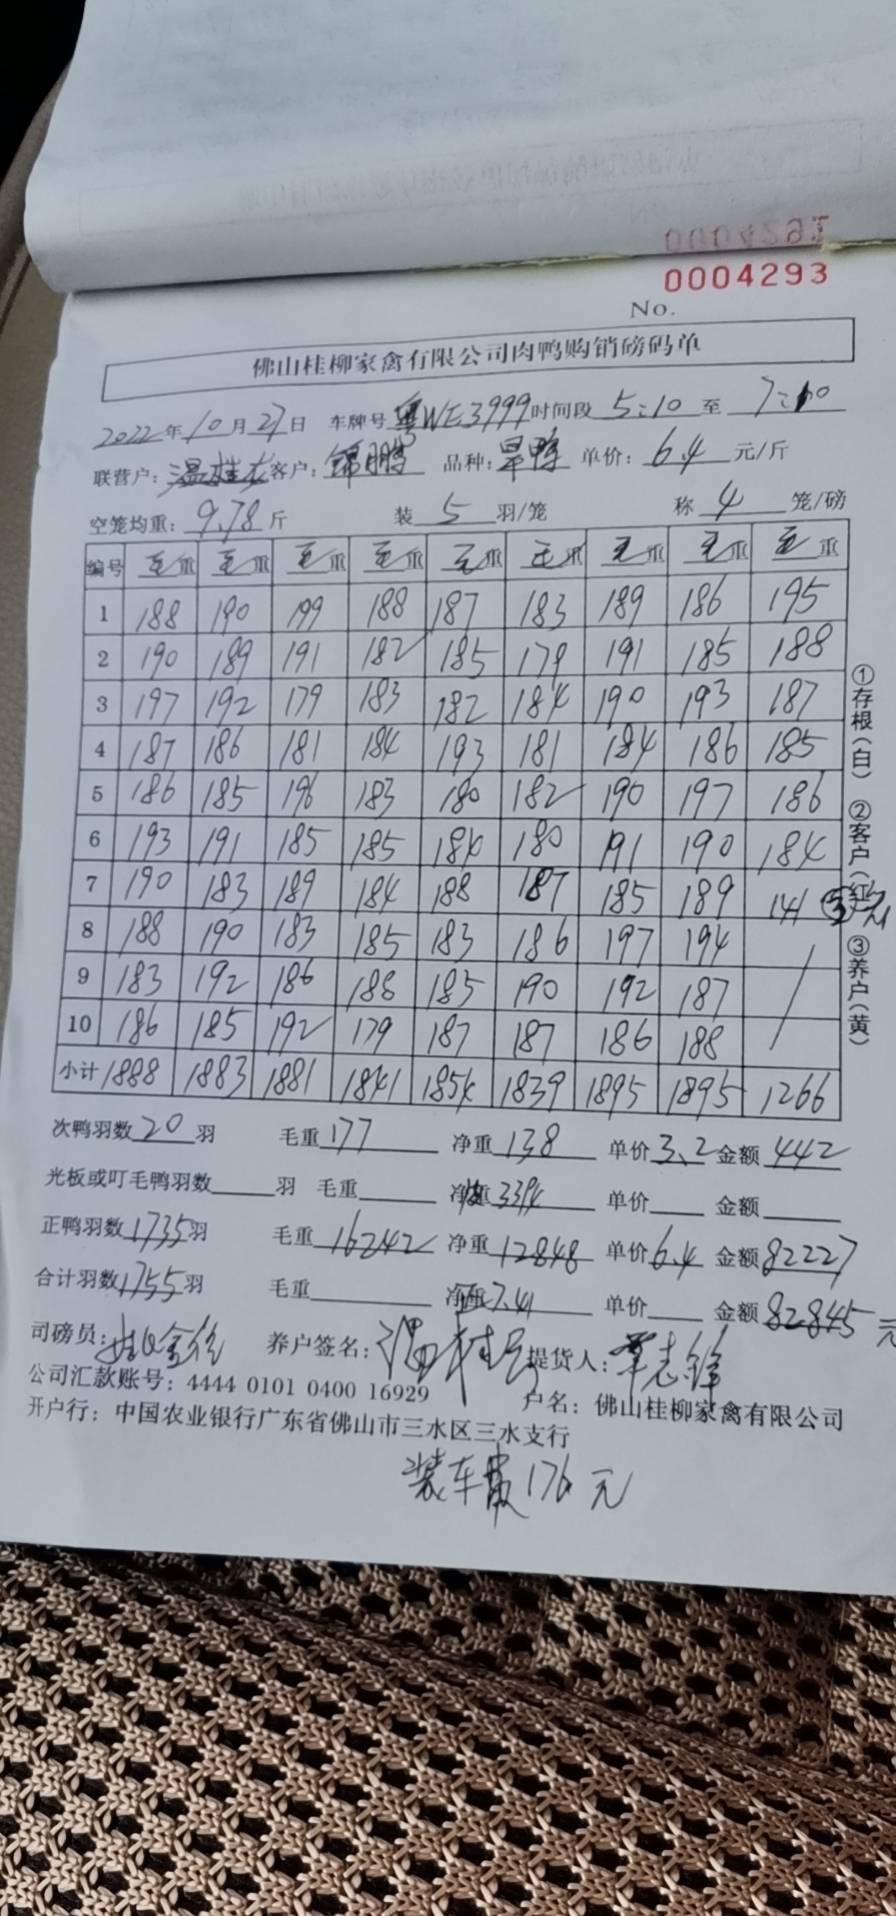 0004293
No.
佛山桂柳家禽有限公司肉鸭购销磅码单
2022年10月27日 车牌号 粤WE3999 时间段 5:10 至 7:10
联营户: 客户: 锦鹏 品种: 旱鸭 单价: 6.4 元/斤
空笼均重: 9.78 斤 装 5 羽/笼 称 4 笼/磅
编号 毛重 毛重 毛重 毛重 毛重 毛重 毛重 毛重 毛重
1 188 190 199 188 187 183 189 186 195
2 190 189 191 182 185 179 191 185 188
3 197 192 179 183 182 184 190 193 187
4 187 186 181 184 193 181 184 186 185
5 186 185 196 183 180 182 190 197 186
6 193 191 185 185 184 180 191 190 184
7 190 183 189 184 188 187 185 189 141
8 188 190 183 185 183 186 197 194
9 183 192 186 188 185 190 192 187
10 186 185 192 179 187 187 186 188
小计 1888 1883 1881 1841 1854 1839 1895 1895 1266
①存根(白) ②客户(红) ③养户(黄)
次鸭羽数 20 羽 毛重 177 净重 138 单价 3.2 金额 442
光板或叮毛鸭羽数 羽 毛重 净重 3394 单价 金额
正鸭羽数 1735 羽 毛重 16242 净重 12848 单价 6.4 金额 82227
合计羽数 1755 羽 毛重 净重 7.41 单价 金额 82845 元
司磅员: 养户签名: 提货人: 志锋
公司汇款账号: 4444 0101 0400 16929 户名: 佛山桂柳家禽有限公司
开户行: 中国农业银行广东省佛山市三水区三水支行
装车费 176 元